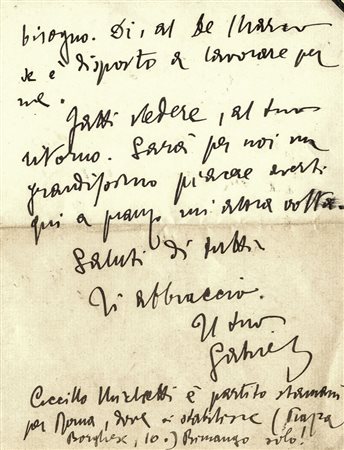 bisogno. Di' al De Marco
se è disposto a lavorare per
me.
Fatti vedere, al tuo
ritorno. Sarà per noi un
grandissimo piacere averti
qui a pranzo un'altra volta.
Saluti di tutti.
Ti abbraccio.
Il tuo
Gabriel
Ciccillo Michetti è partito stamani
per Roma, dove si stabilisce (Piazza
Borghese, 10.) Rimango solo!